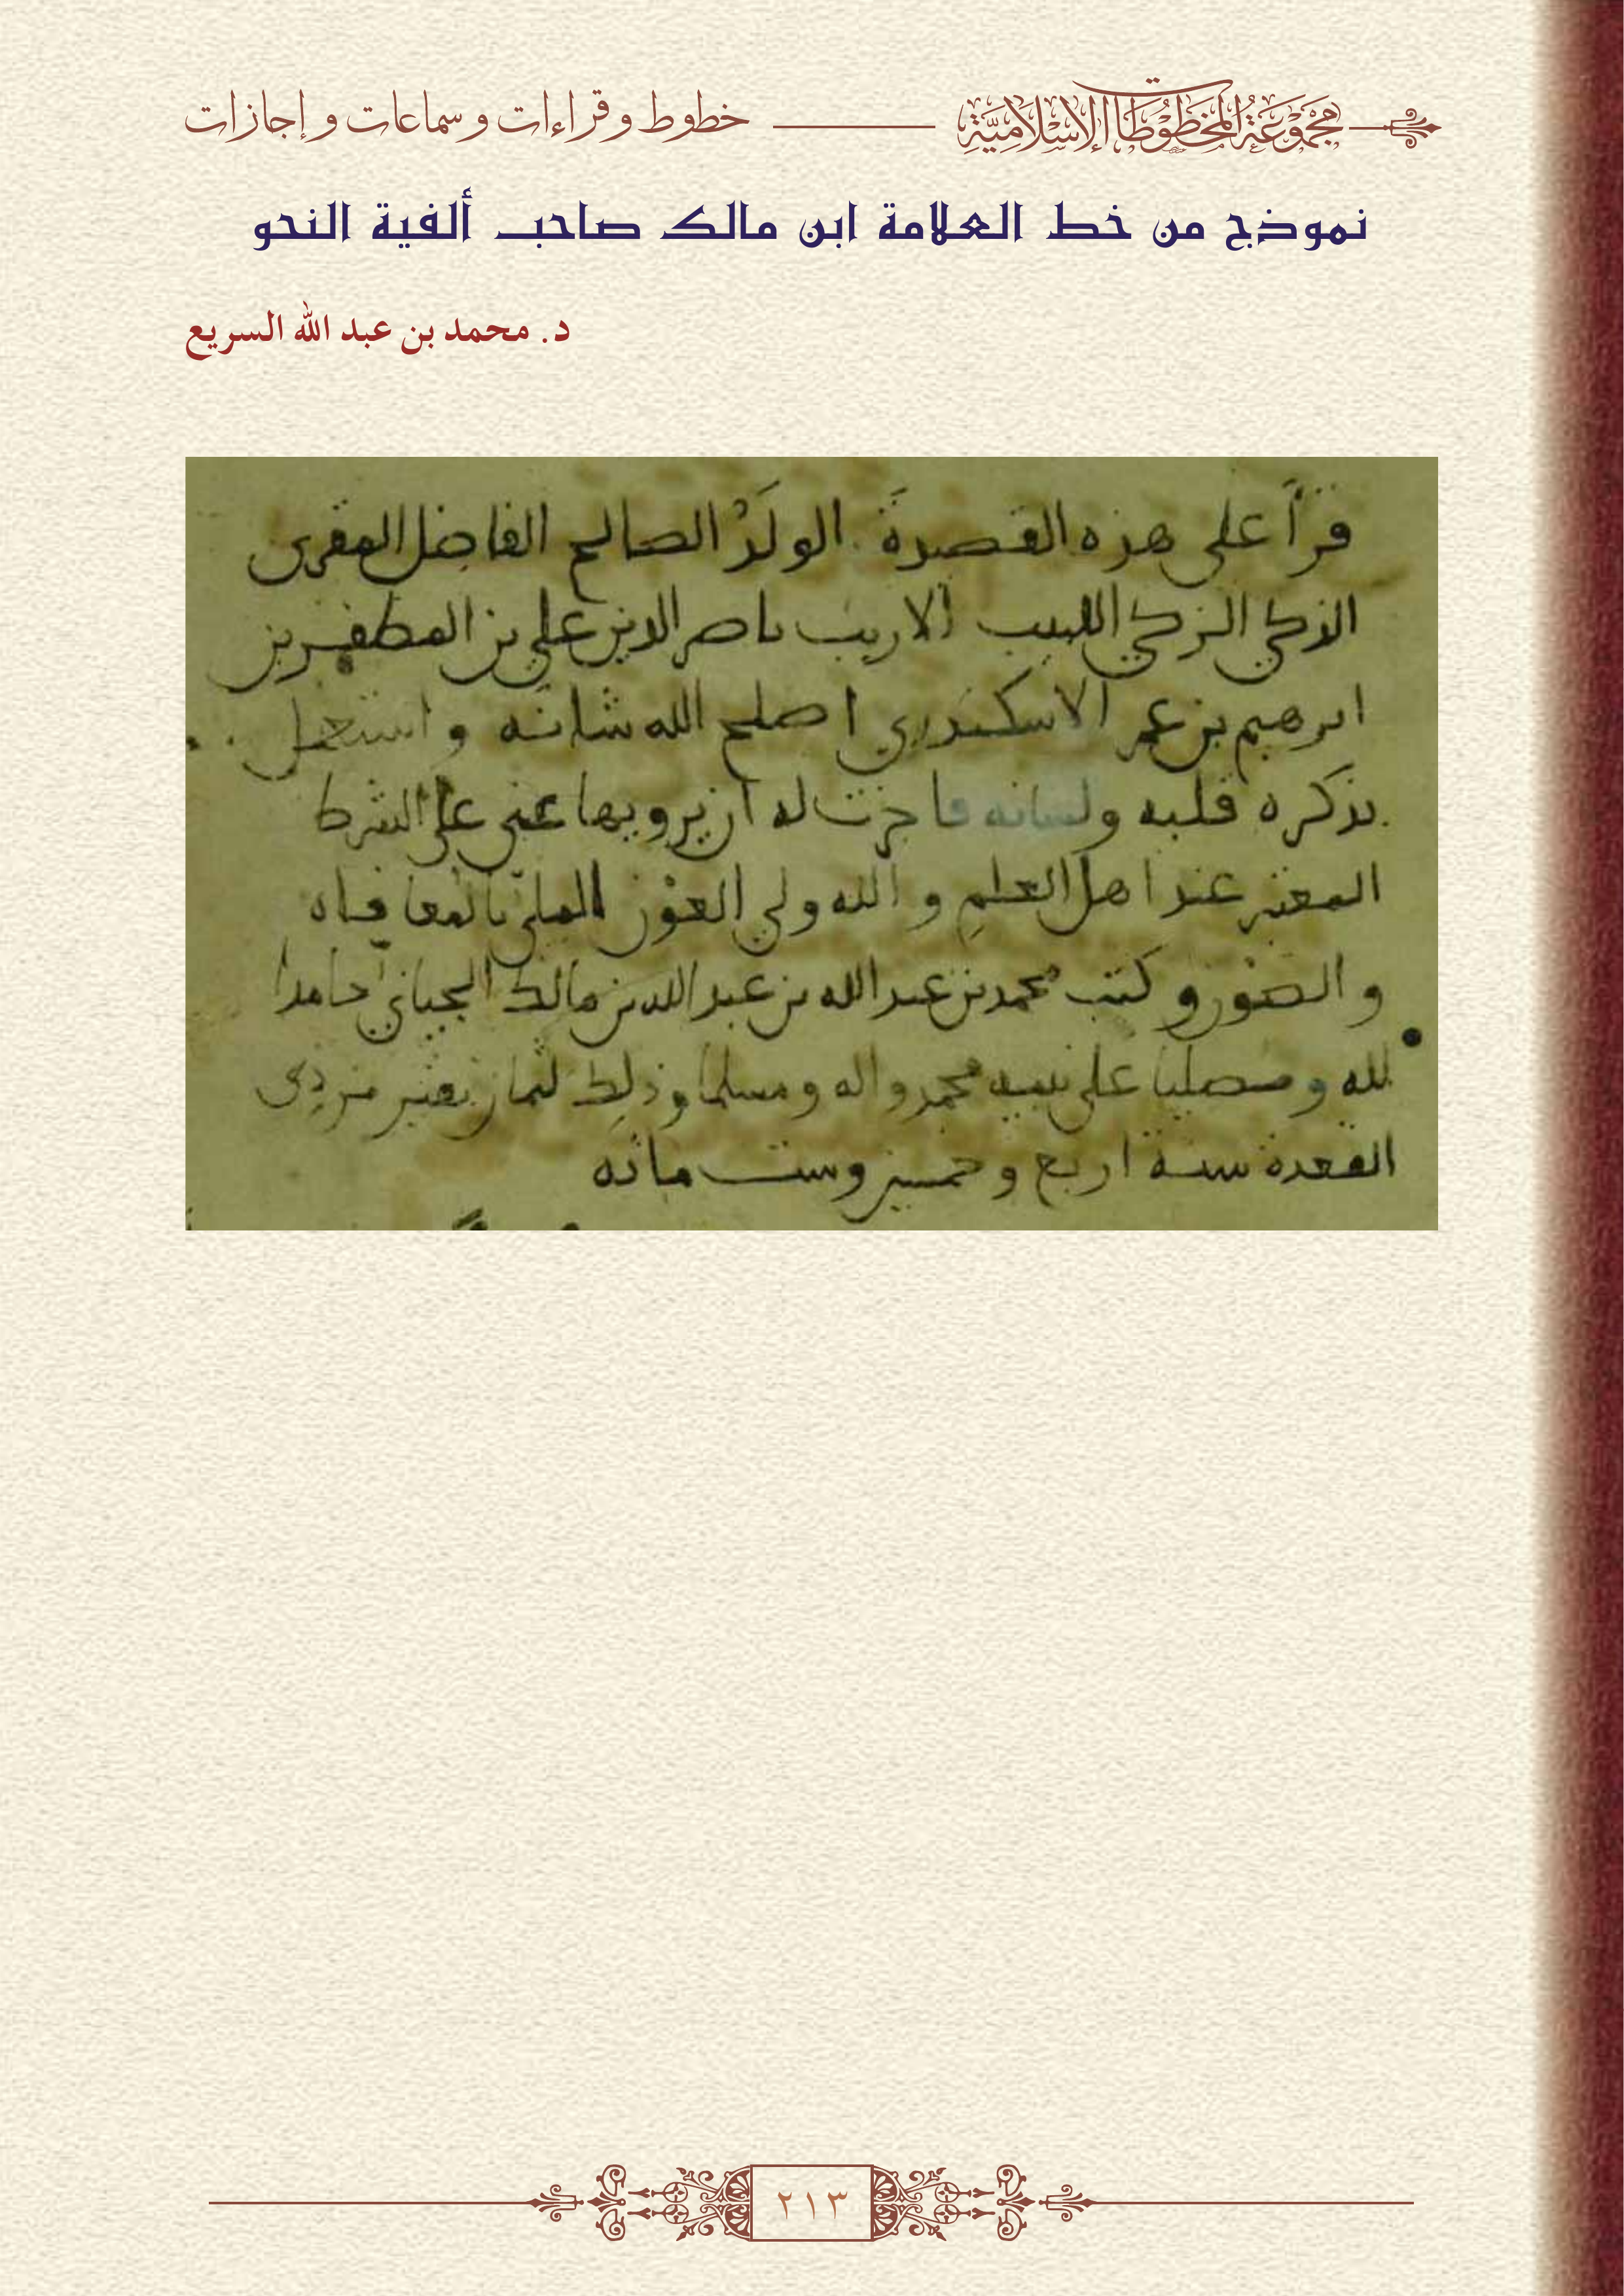 مجموعة المخطوطات الإسلامية
خطوط وقراءات وسماعات وإجازات
نموذج من خط العلامة ابن مالك صاحب ألفية النحو
د. محمد بن عبد الله السريع
قرأ على هذه القصيدة الولد الصالح الفاضل المقرى
الذكي الزكي اللبيب الاريب ناصر الدين علي بن المظفر بن
ابرهيم بن عمر الاسكندري اصلح الله شانه واستعمل
بذكره قلبه ولسانه فاجزت له ان يرويها عني على الشرط
المعتبر عند اهل العلم والله ولي العون الملي بالمعافاه
والصون وكتب محمد بن عبد الله بن عبد الله بن مالك الجياني حامدا
لله ومصليا على نبيه محمد واله ومسلما وذلك لثمان بقين من ذي
القعدة سنة اربع وخمسين وست مائه
٢١٣